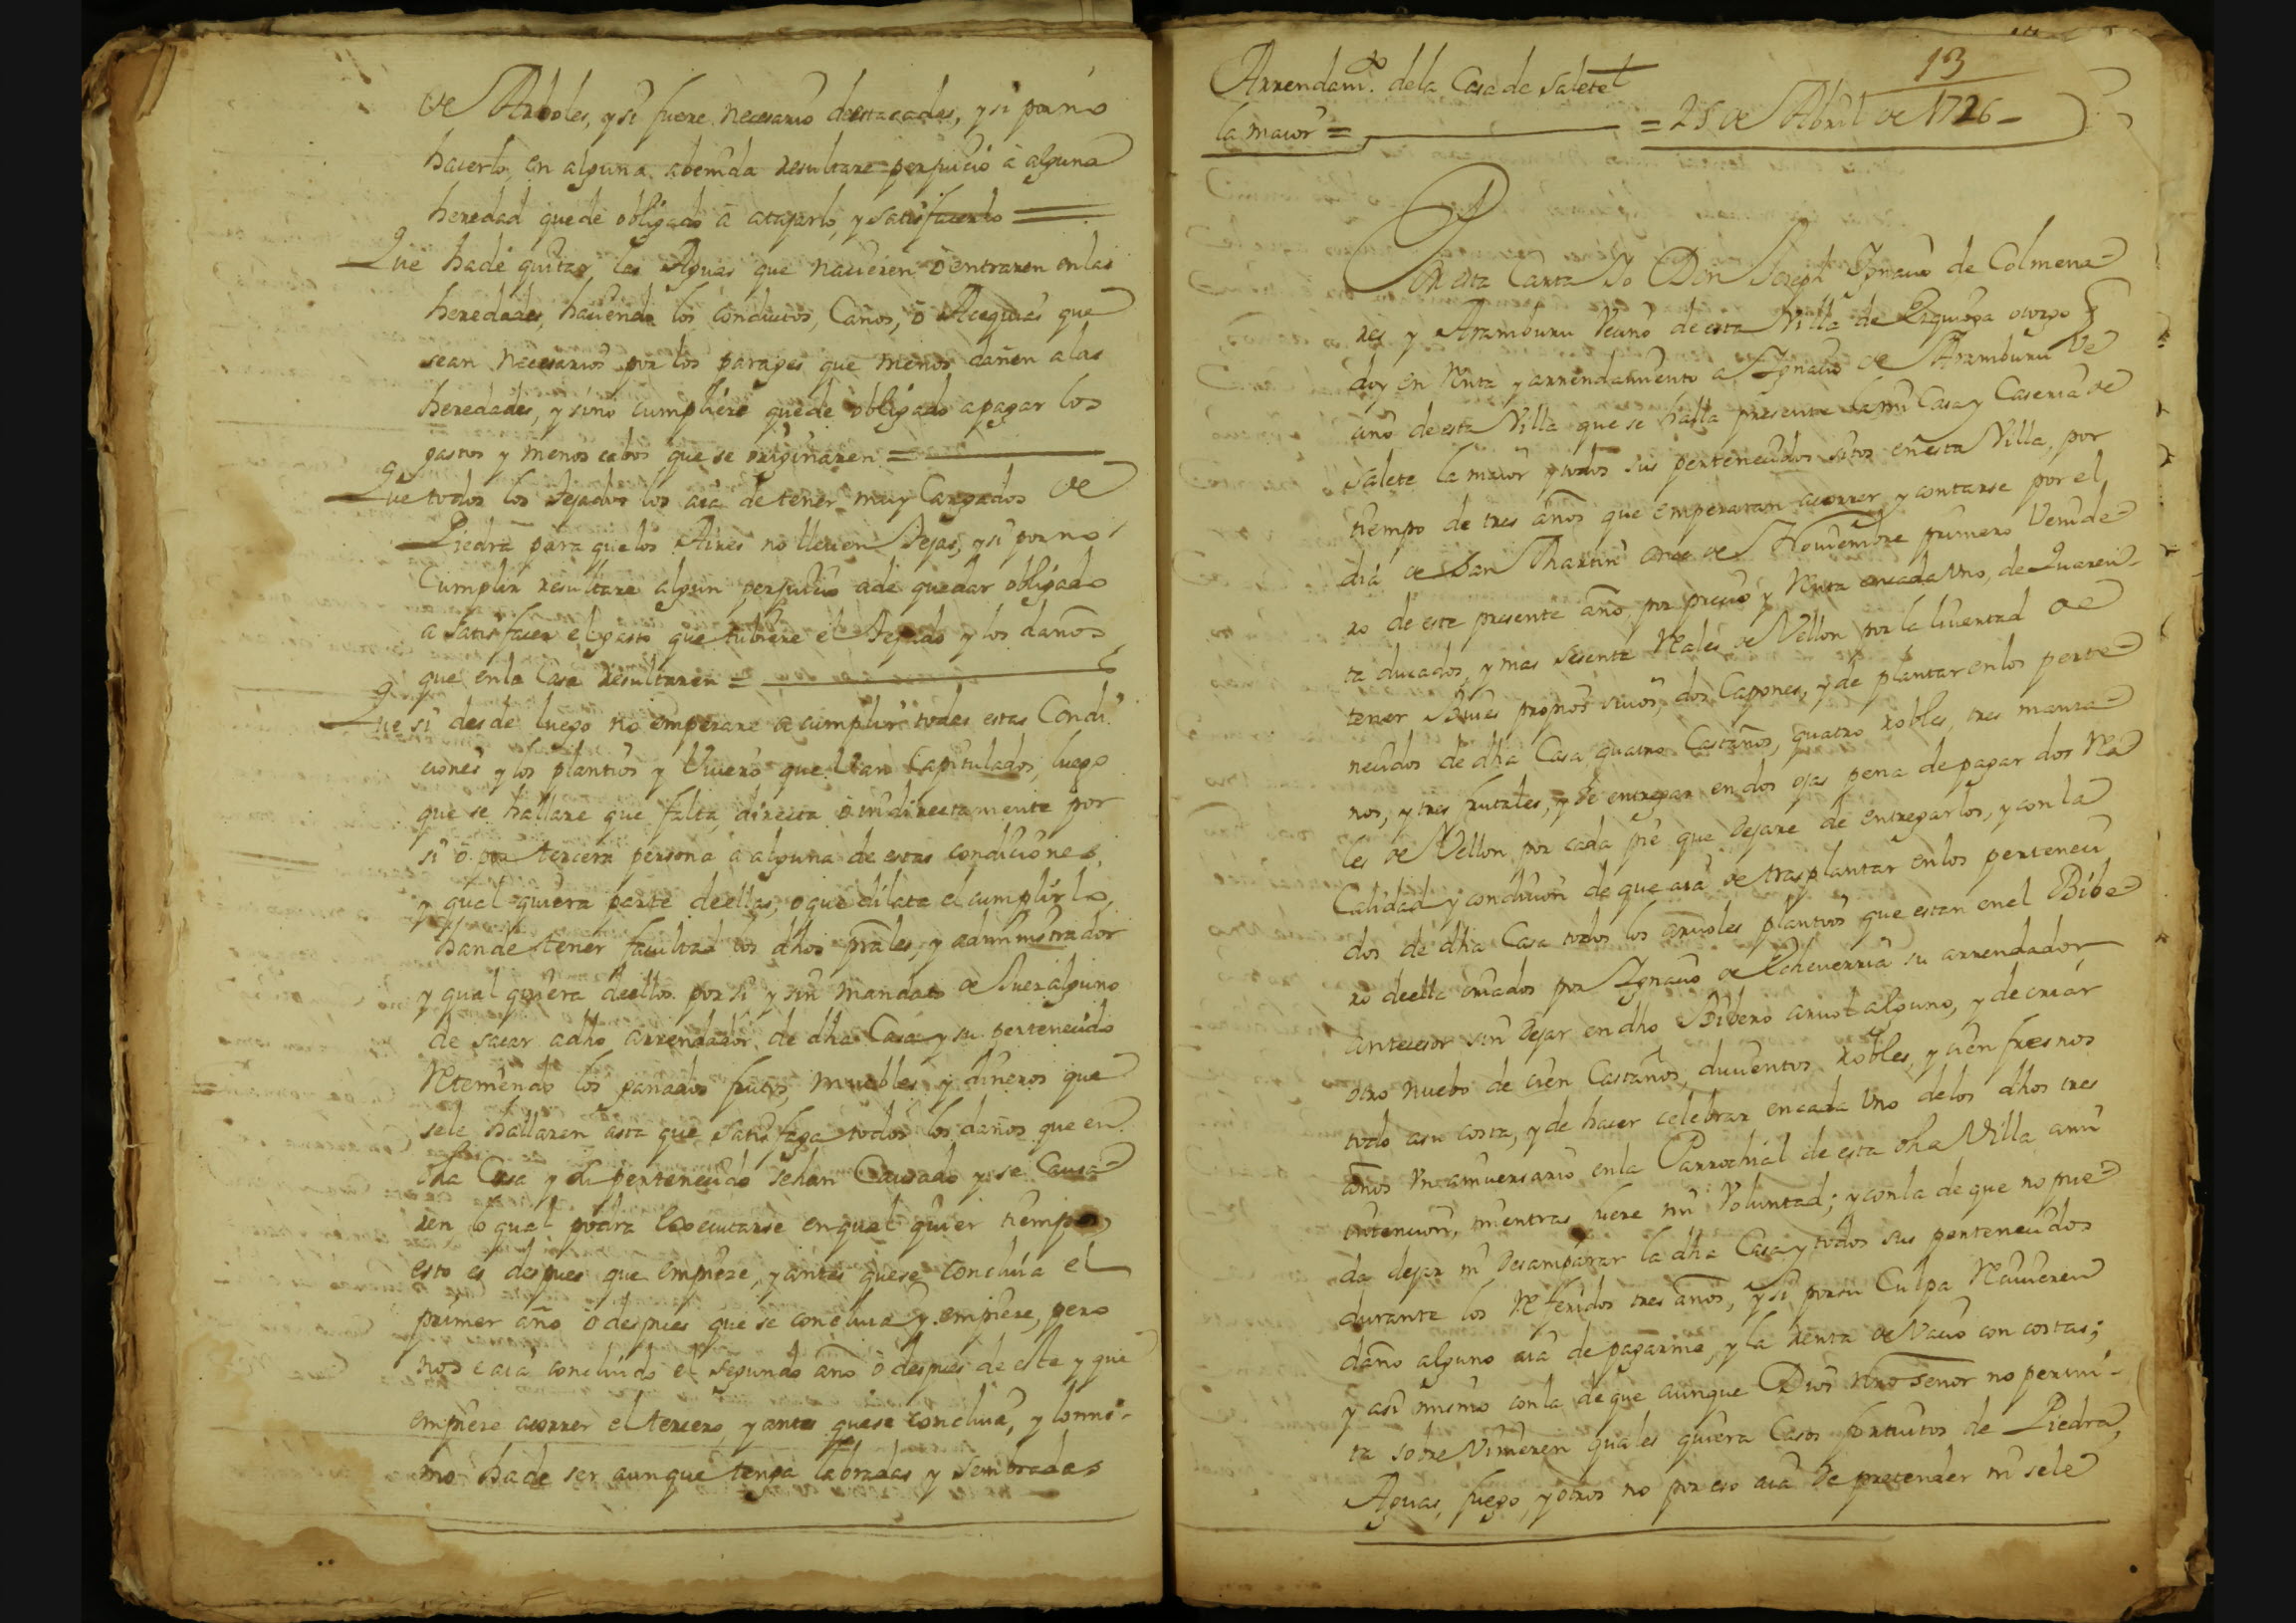 de Arboles, y si fuere necesario de estacades, y si por no
hacerlo, en alguna abenida resultare perjuicio à alguna
heredad quede obligado à atajarlo, y satisfacerlo =
Que hade quitar las Aguas que nacieren ò entraren en las
heredades, haciendo los conductos, Caños, ò Acequias que
sean necesarios por los parages que menos dañen a las
heredades, y sino cumpliere quede obligado a pagar los
gastos y menos cabos que se originaren =
Que todos los Tejados los aia de tener muy Cargados de
Piedra para que los Aires no lleuen Tejas, y si por no
Cumplir resultare algun perjuicio ade quedar obligado
a satisfacer el gasto que tubiere el Tejado y los daños
que en la Casa resultaren =
Que si desde luego no empezare a cumplir todas estas Condi
ciones y los plantios y Viuero que Van Capitulados, luego
que se hallare que falta, directa ò indirectamente por
si ò por tercera persona à alguna de estas condiciones,
y qual quiera parte de ellas, o que dilata el cumplirlo,
hande tener facultad los dhos prales, y administrador
y qual quiera de ellos por si y sin mandato de Juez alguno
de sacar adho arrendador de dha Casa y su pertenecido
Reteniendo los ganados frutos, muebles y dineros que
sele hallaren asta que satisfaga todos los daños que en
dha Casa y su pertenecido sehan Causado y se Causa
ren lo qual podra Executarse en qual quier tiempo,
esto es despues que empieze, y antes que se concluia el
primer año ò despues que se concluia y empieze, pero
no se aia concluido el segundo año ò despues de este y que
empieze acorrer el tercero, y antes que se concluia, y lo mis-
mo hade ser aunque tenga labradas y sembradas
Arrendamto. de la Casa de Salete
la maior =
13
= 25 de Abril de 1726 -
Por esta Carta Yo Don Joseph Ignacio de Colmena
res y Aramburu Vecino de esta Villa de Ezquioga otorgo
doy en Renta y arrendamiento a Ignacio de Aramburu Ve
cino de esta Villa que se halla presente la mi Casa y Caseria de
Salete la maior y todos sus pertenecidos sitos en esta Villa, por
tiempo de tres años que empezaran acorrer y contarse por el
dia de San Martin once de Nouiembre primero Venide
ro de este presente año, por precio y Renta encada Uno, de Quaren-
ta ducados, y mas sesenta Reales de Vellon por la liuertad de
tener Bues propios suios, dos Capones, y de plantar en los perte
necidos de dha Casa, quatro Castaños, quatro robles, tres manza
nos, y tres frutales, y de entregar en dos ojas pena de pagar dos Rea
les de Vellon por cada pie que dejare de entregarlos, y con la
Calidad y condicion de que aia de trasplantar en los perteneci
dos de dha Casa todos los aruoles plantios que estan en el Bibe
ro de ella criados por Ignacio de Echeuerria su arrendador
antecesor sin dejar en dho Bibero aruol alguno, y de criar
otro nuebo de cien Castaños, ducientos robles, y cien fresnos
todo asu costa, y de hacer celebrar encada Uno de los dhos tres
años Un aniuersario en la Parrochial de esta dha Villa ami
intencion, mientras fuere mi Voluntad; y con la de que no pue
da dejar ni desamparar la dha Casa y todos sus pertenecidos
durante los Referidos tres años, y si por su Culpa Reciuieren
daño alguno aia de pagarme, y la renta de Vacio con costas;
y asi mismo con la de que aunque Dios nro señor no permi-
ta sobre Vinieren quales quiera Casos fortuitos de Piedra,
Aguas, fuego, y otros no por eso aia de pretender ni sele